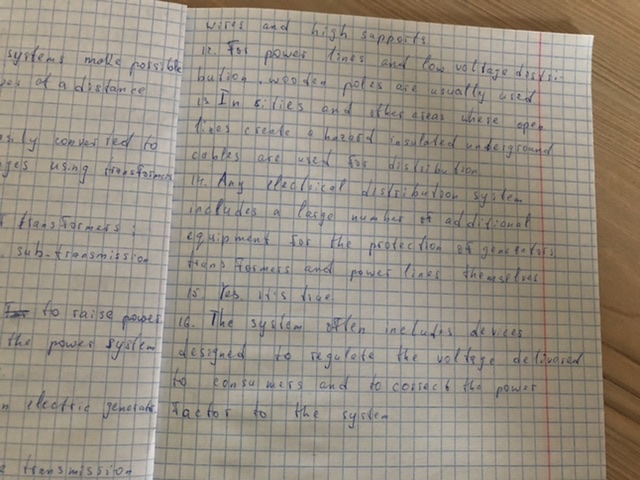 systems make possible
of at a distance
converted to
using transformers
transformers:
sub-transmission
to raise power
the power system
electric generator
transmission
wires and high supports
12. For power lines and low voltage distri-
bution wooden poles are usually used
13 In cities and other areas where open
lines create a hazard insulated underground
cables are used for distribution
14. Any electrical distribution system
includes a large number of additional
equipment for the protection of generators,
transformers and power lines themselves
15. Yes it's true.
16. The system often includes devices
designed to regulate the voltage delivered
to consumers and to correct the power
factor to the system